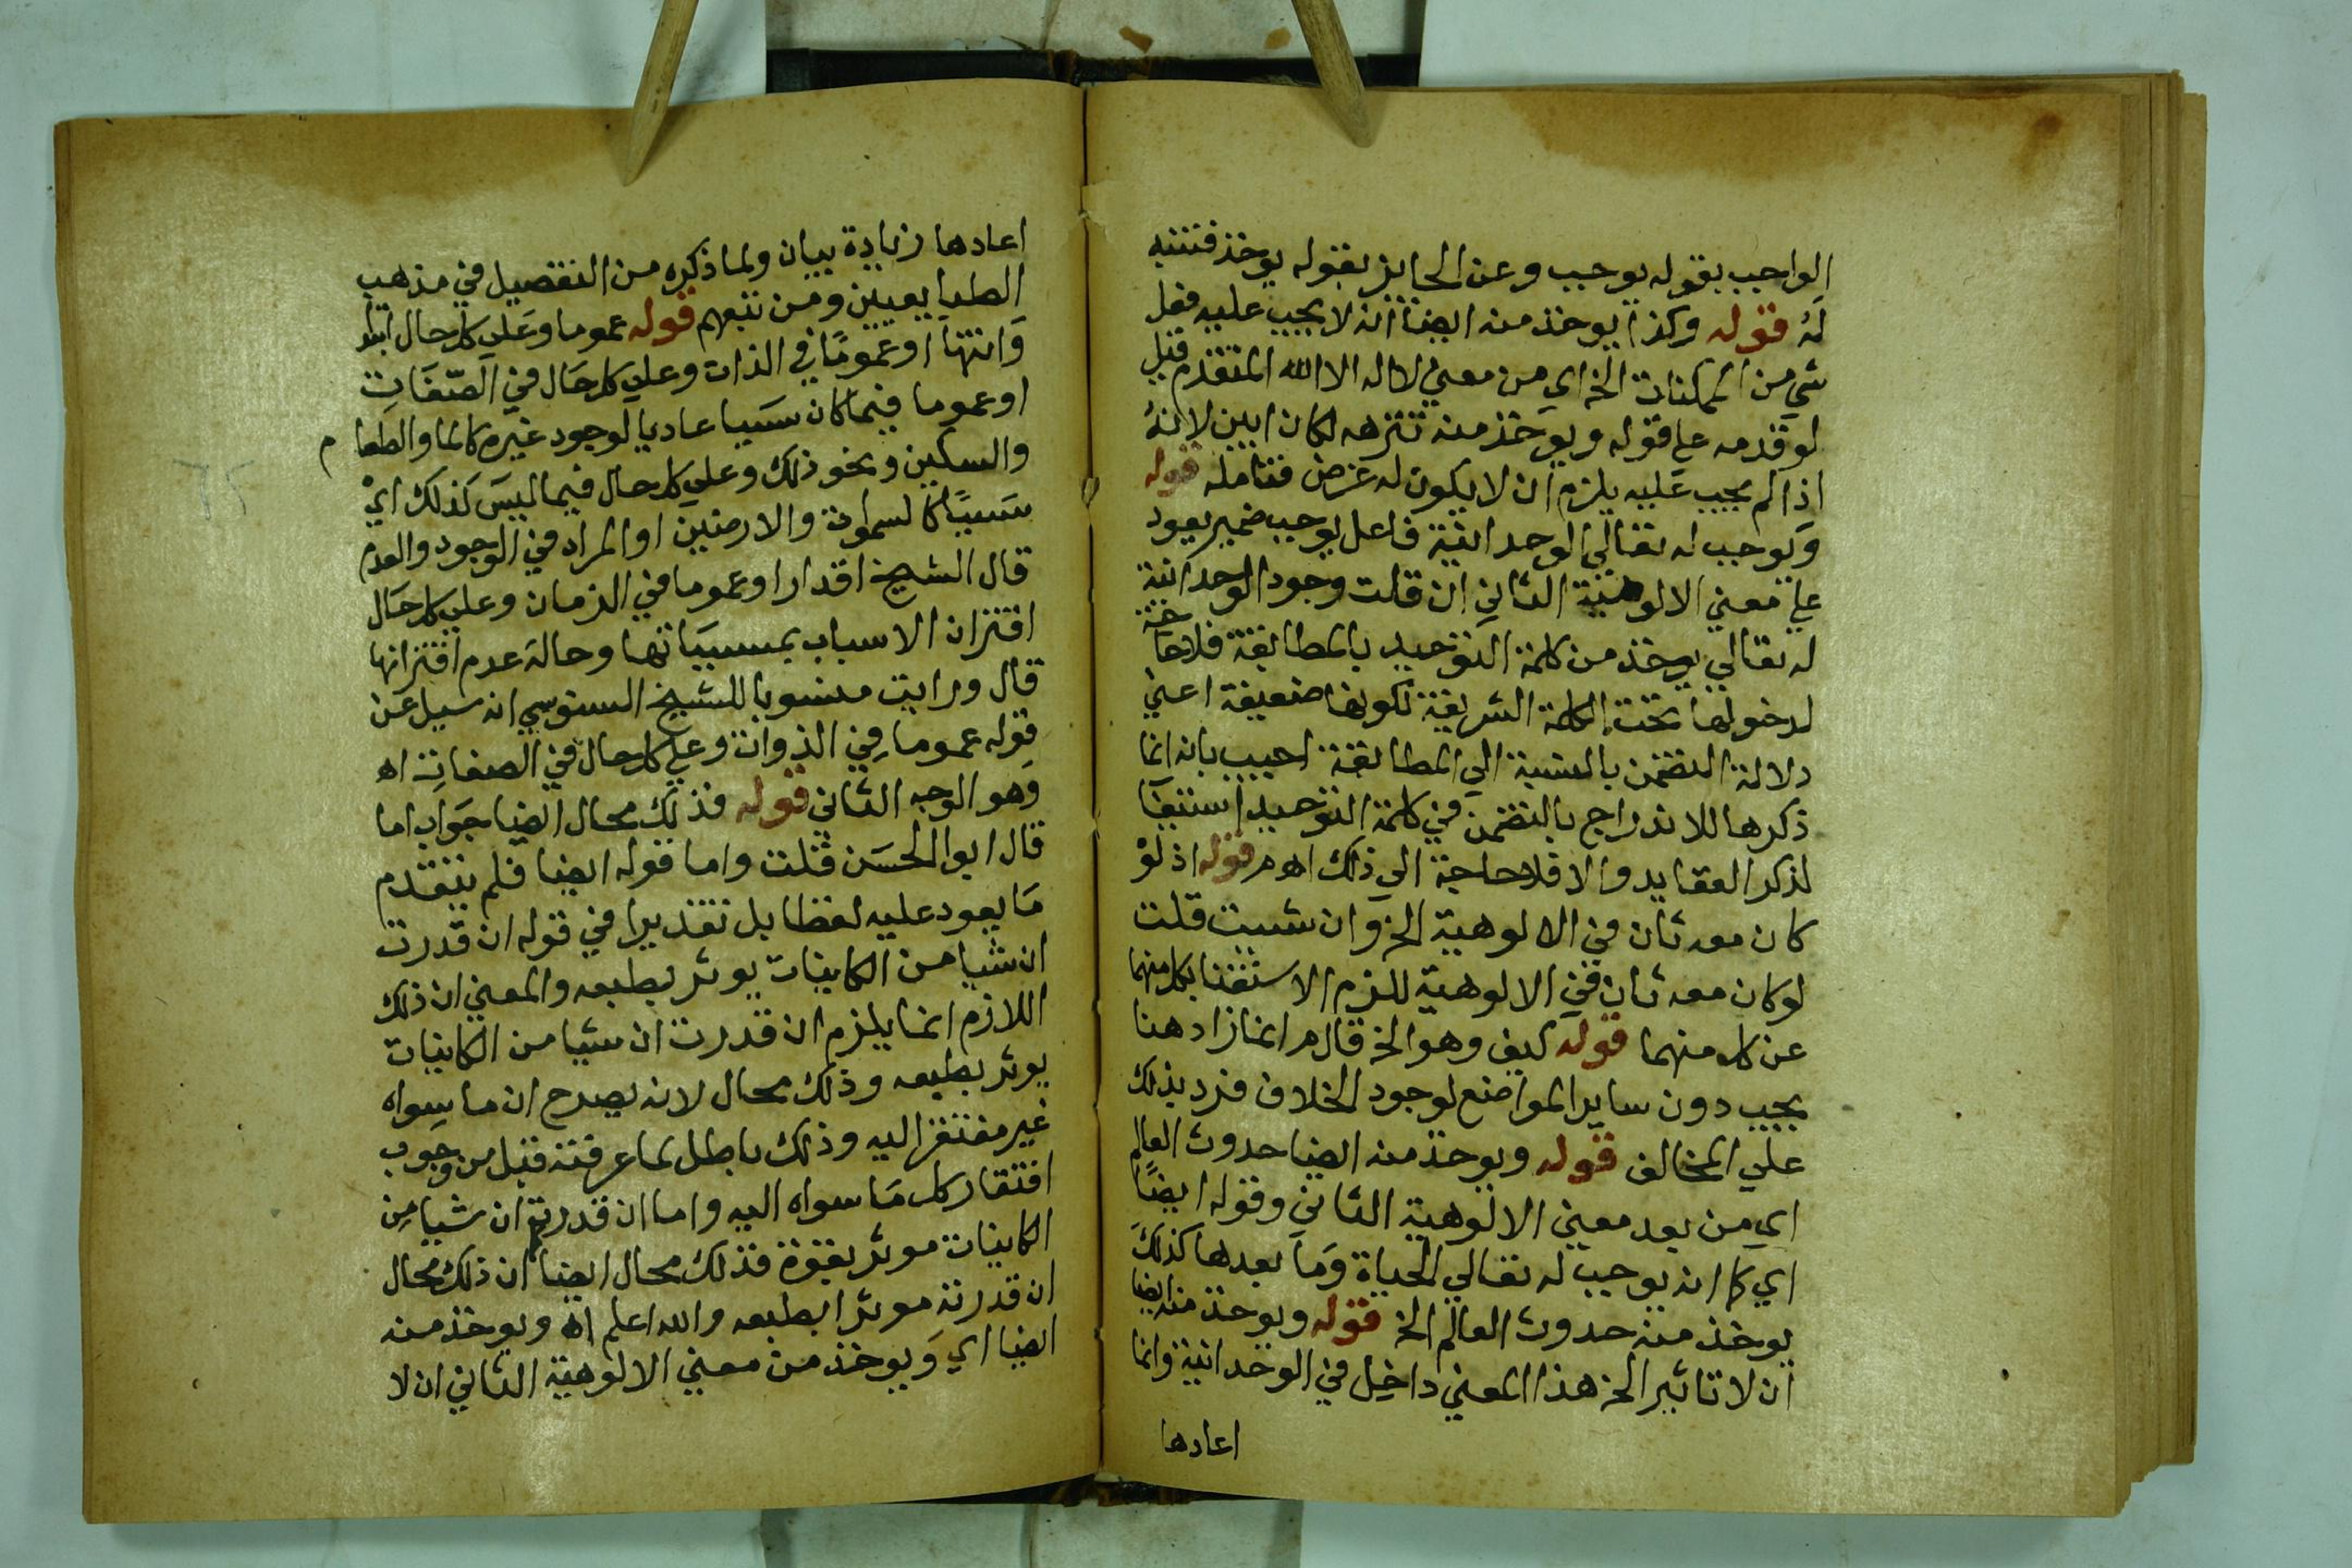 الواجب بقوله يوجب وعن الجايز بقوله يوخذ فتنبه
له قوله وكذا يوخذ منه ايضا انه لا يجب عليه فعل
شي من الممكنات الخ اي من معني لا اله الا الله المتقدم قيل
لو قدمه علي قوله ويوخذ منه تنزهه لكان ابين لانه
اذا لم يجب عليه يلزم ان لا يكون له غرض فتامله قوله
ويوجب له تعالي الوحدانية فاعل يوجب ضمير يعود
علي معني الالوهية الثاني ان قلت وجود الوحدانية
له تعالي يوخذ من كلمة التوحيد بالمطابقة فلا حاجة
لدخولها تحت الكلمة الشريفة لكونها ضعيفة اعني
دلالة التضمن بالنسبة الي المطابقة اجيب بانه انما
ذكرها للاندراج بالتضمن في كلمة التوحيد استيفا
لذكر العقايد والا فلا حاجة الي ذلك اه م قوله اذ لو
كان معه ثان في الالوهية الخ وان شيت قلت
لو كان معه ثان في الالوهية للزم الاستغنا بكل منهما
عن كل منهما قوله كيف وهو الخ قال م انما زاد هنا
يجب دون ساير المواضع لوجود الخلاف فرد بذلك
علي المخالف قوله ويوخذ منه ايضا حدوث العالم
اي من بعد معني الالوهية الثاني وقوله ايضا
اي كما انه يوجب له تعالي الحياة وما بعدها كذلك
يوخذ منه حدوث العالم الخ قوله ويوخذ منه ايضا
ان لا تاثير الخ هذا المعني داخل في الوحدانية وانما
اعادها
اعادها زيادة بيان ولما ذكره من التفصيل في مذهب
الطبايعيين ومن تبعهم قوله عموما وعلي كل حال ابتدا
وانتها او عموما في الذات وعلي كل حال في الصفات
او عموما فيما كان سببا عاديا لوجود غيره كالما والطعام
والسكين ونحو ذلك وعلي كل حال فيما ليس كذلك اي
سببا كالسموات والارضين او المراد في الوجود والعدم
قال الشيخ اقدار او عموما في الزمان وعلي كل حال
اقتران الاسباب بمسبباتها وحالة عدم اقترانها
قال ورايت منسوبا للشيخ السنوسي انه سيل عن
قوله عموما في الذوات وعلي كل حال في الصفات اه
وهو الوجه الثاني قوله فذلك محال ايضا جواب اما
قال ابوا الحسن قلت واما قوله ايضا فلم يتقدم
ما يعود عليه لفظا بل تقديرا في قوله ان قدرت
ان شيا من الكاينات يوثر بطبعه والمعني ان ذلك
اللازم انما يلزم ان قدرت ان شيا من الكاينات
يوثر بطبعه وذلك محال لانه يصرح ان ما سواه
غير مفتقر اليه وذلك باطل لما عرفته قبل من وجوب
افتقار كل ما سواه اليه واما ان قدرته ان شيا من
الكاينات موثر بقوة فذلك محال ايضا ان ذلك محال
ان قدرته موثرا بطبعه والله اعلم اه ويوخذ منه
ايضا اي ويوخذ من معني الالوهية الثاني ان لا